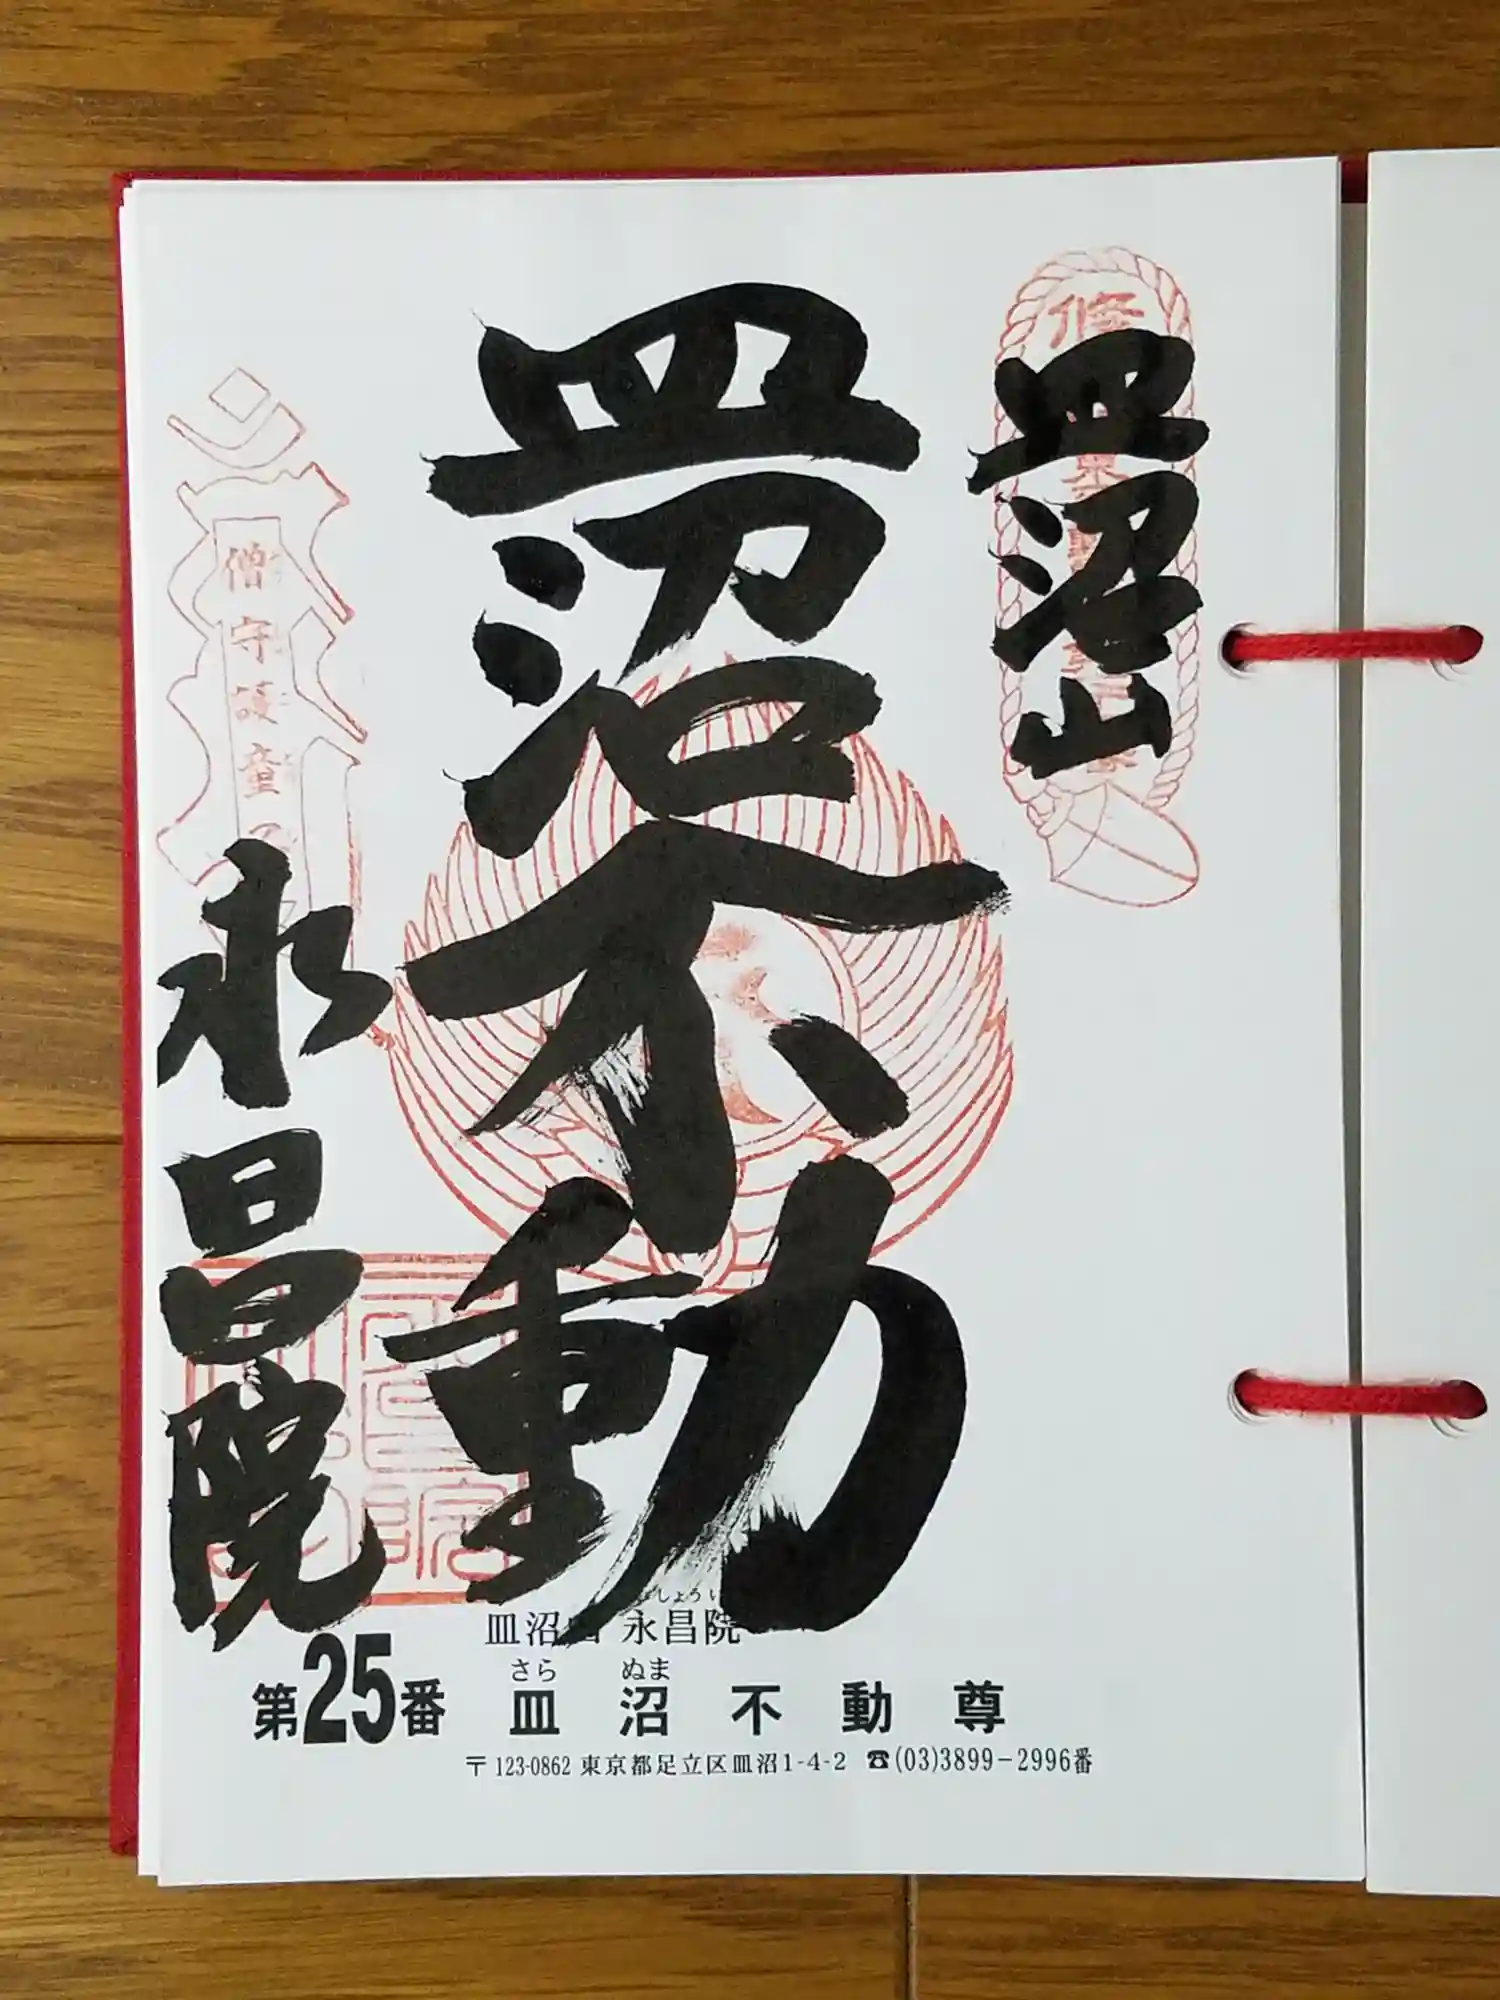 皿沼山
皿沼不動
永昌院
僧守護童
皿沼山 永昌院
さら ぬま
第25番 皿沼不動尊
〒123-0862 東京都足立区皿沼1-4-2 ☎(03)3899-2996番